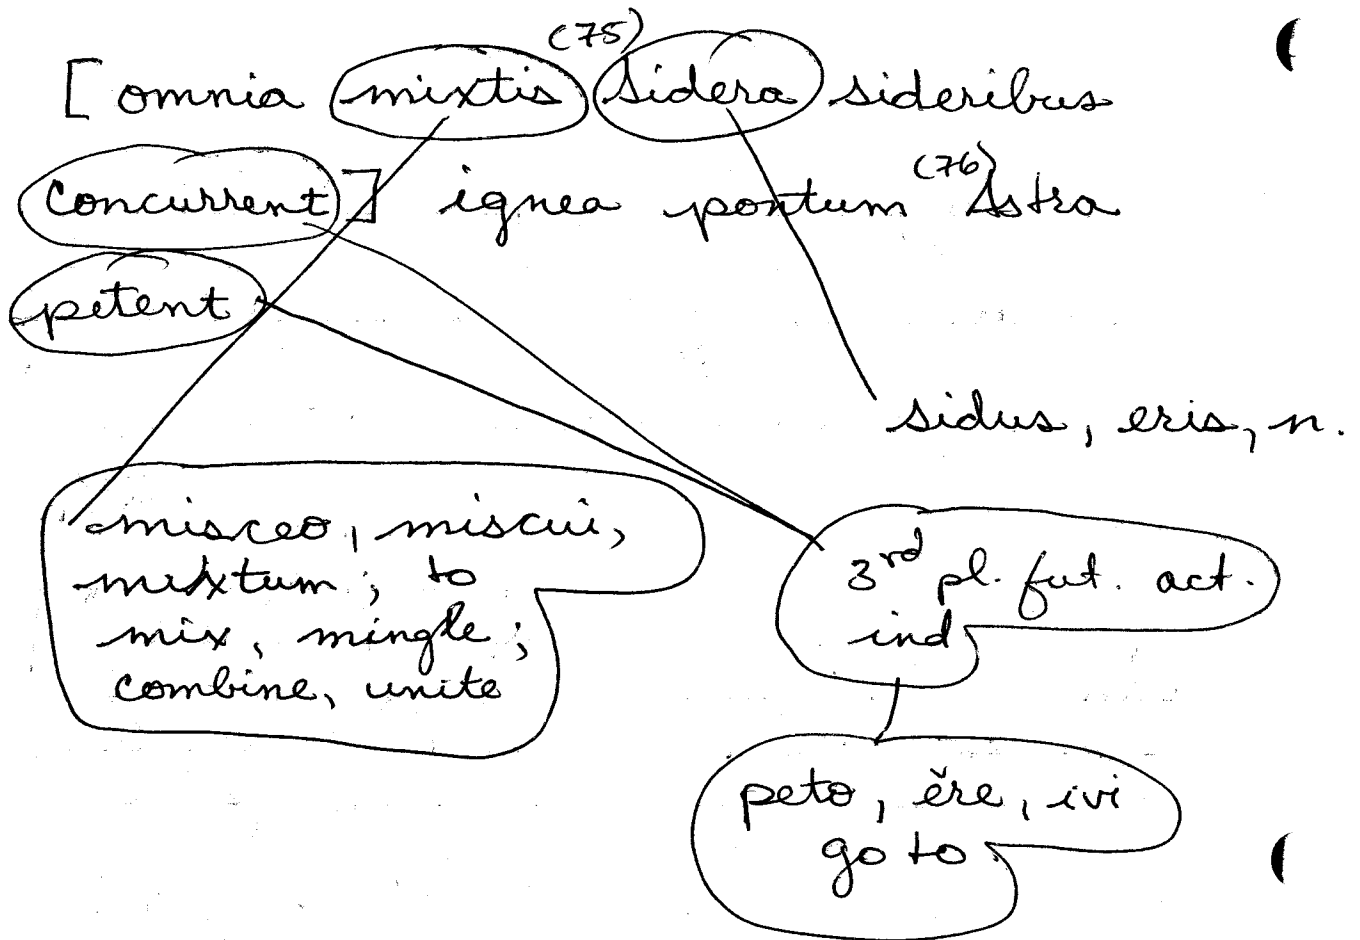 (75)
[ omnia mixtis sidera sideribus
(76)
concurrent ] ignea pontum Astra
petent
sidus, eris, n.
misceo, miscui,
mixtum ; to
mix, mingle ;
combine, unite
3rd pl. fut. act.
ind
peto, ĕre, ivi
go to